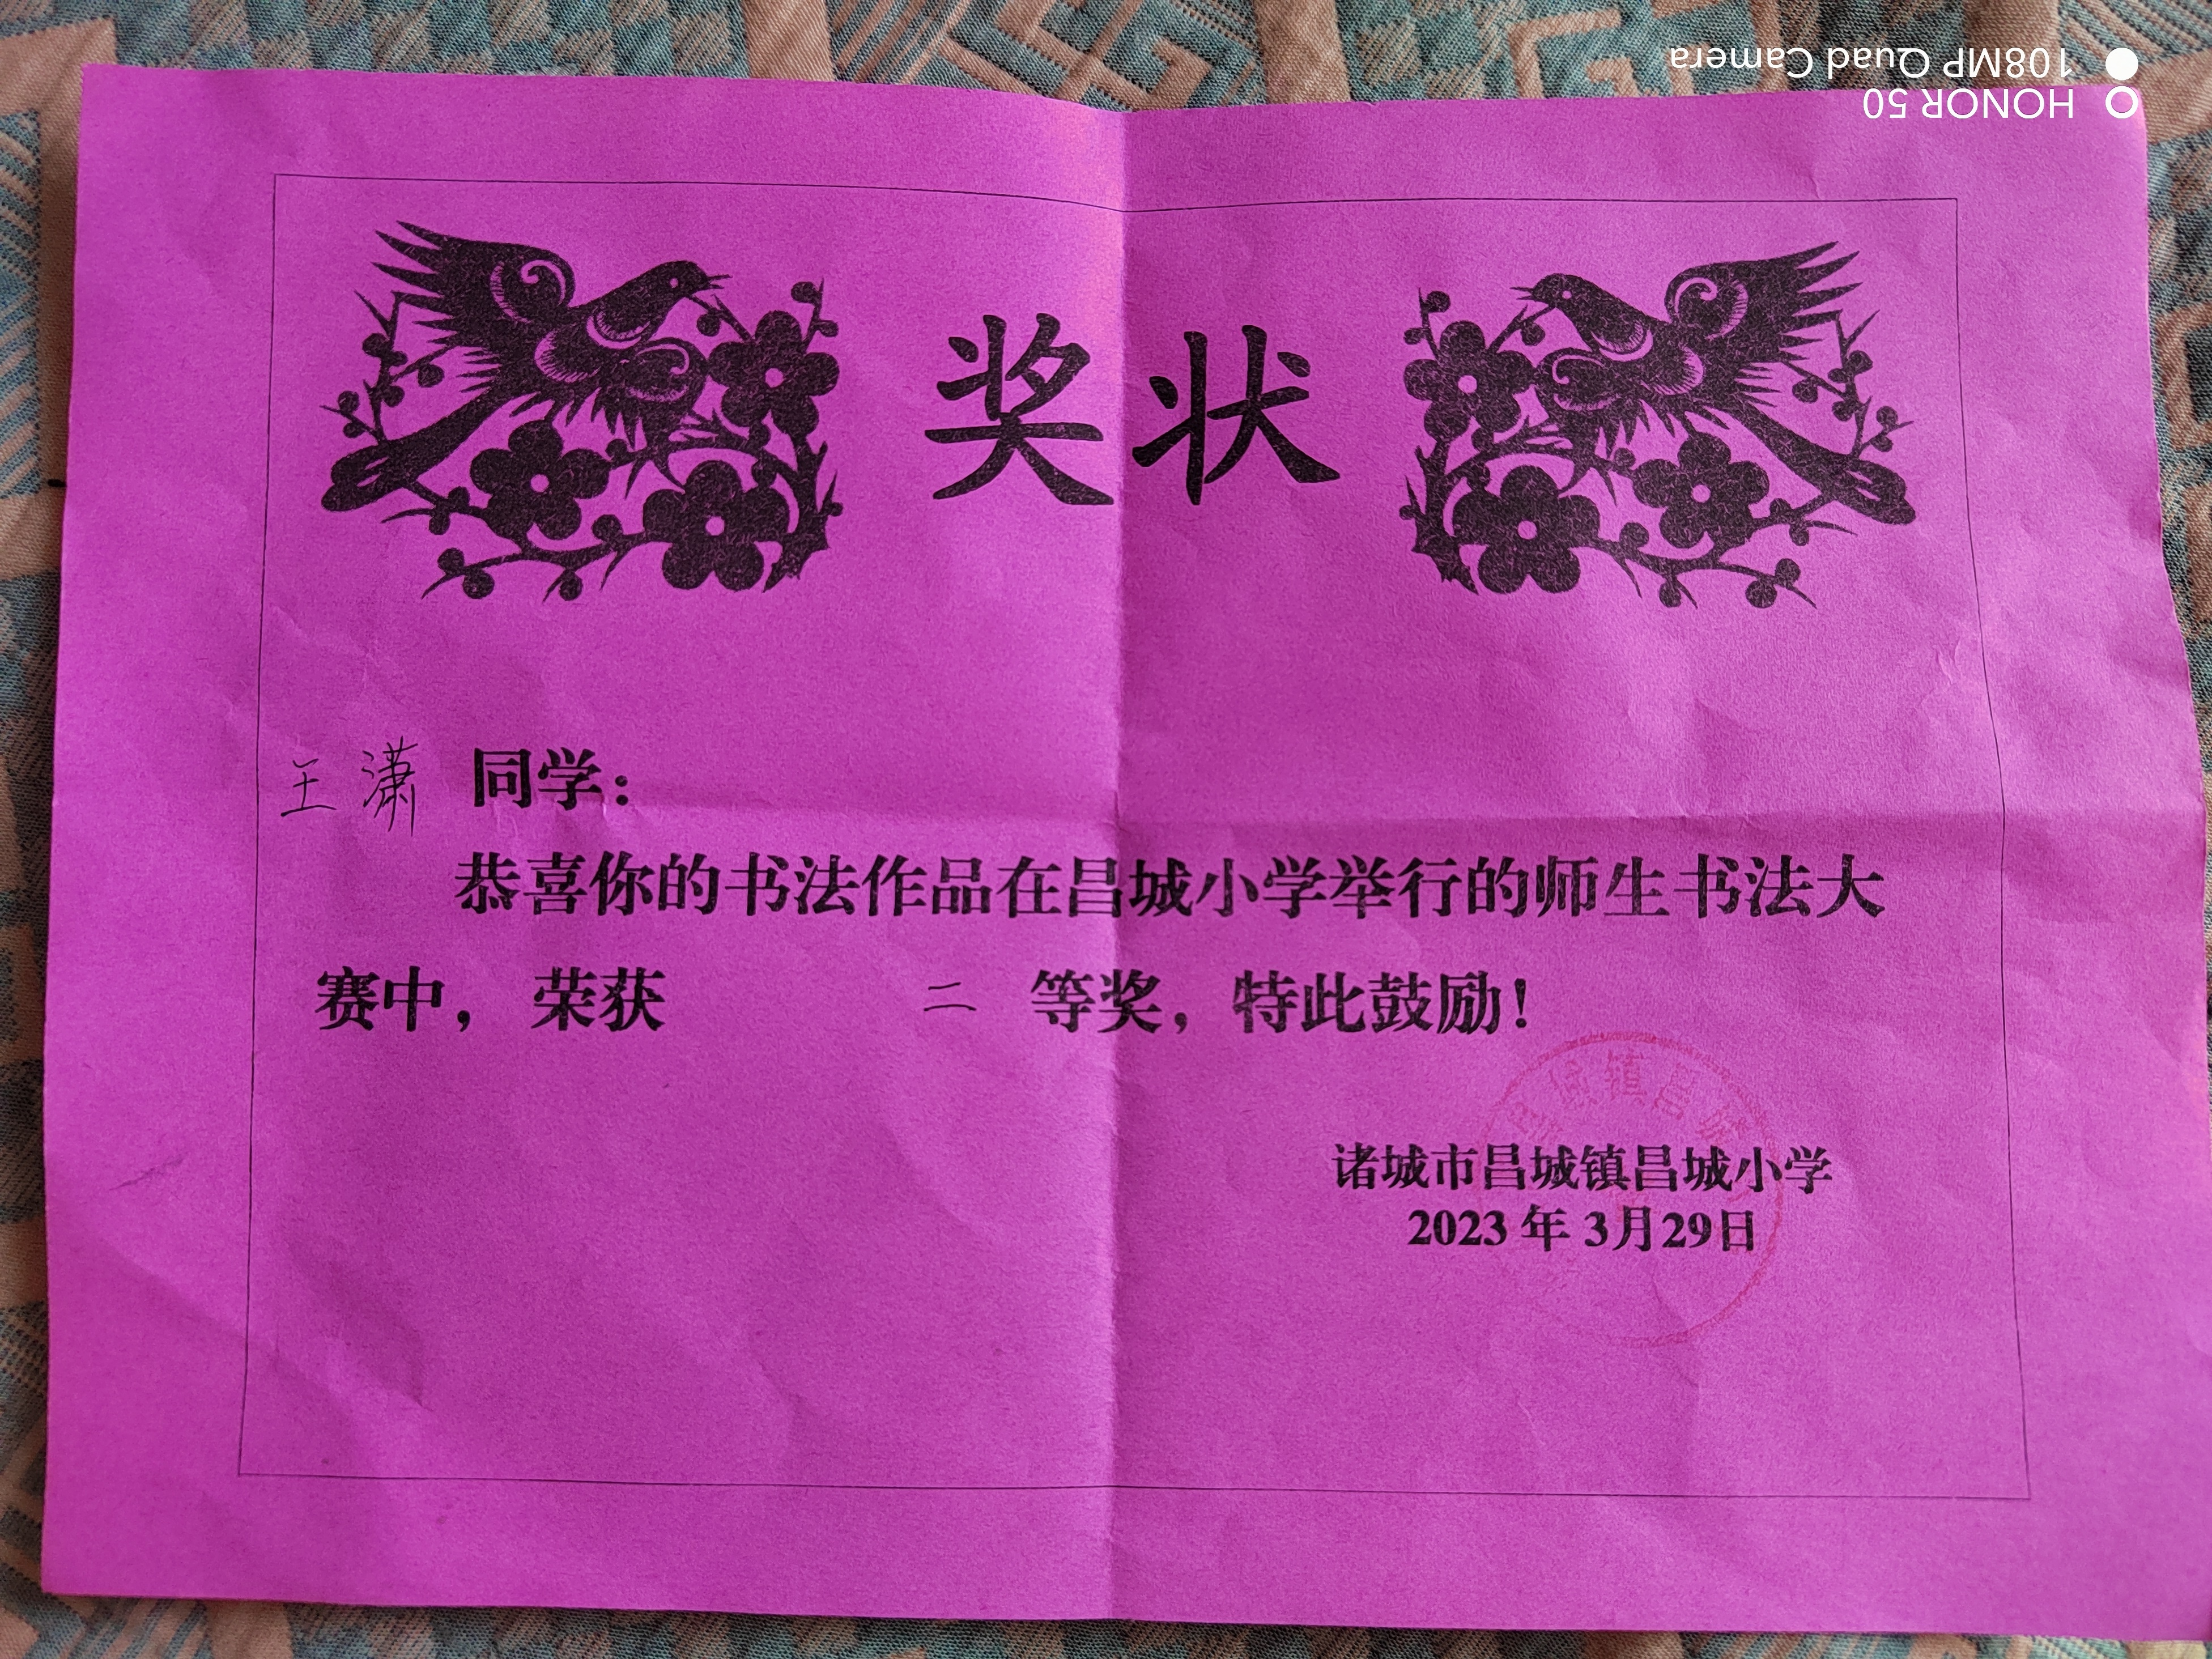 HONOR 50
108MP Quad Camera
奖状
王潇 同学：
恭喜你的书法作品在昌城小学举行的师生书法大
赛中， 荣获 二 等奖，特此鼓励！
昌城镇昌城
诸城市昌城镇昌城小学
2023 年 3月29日